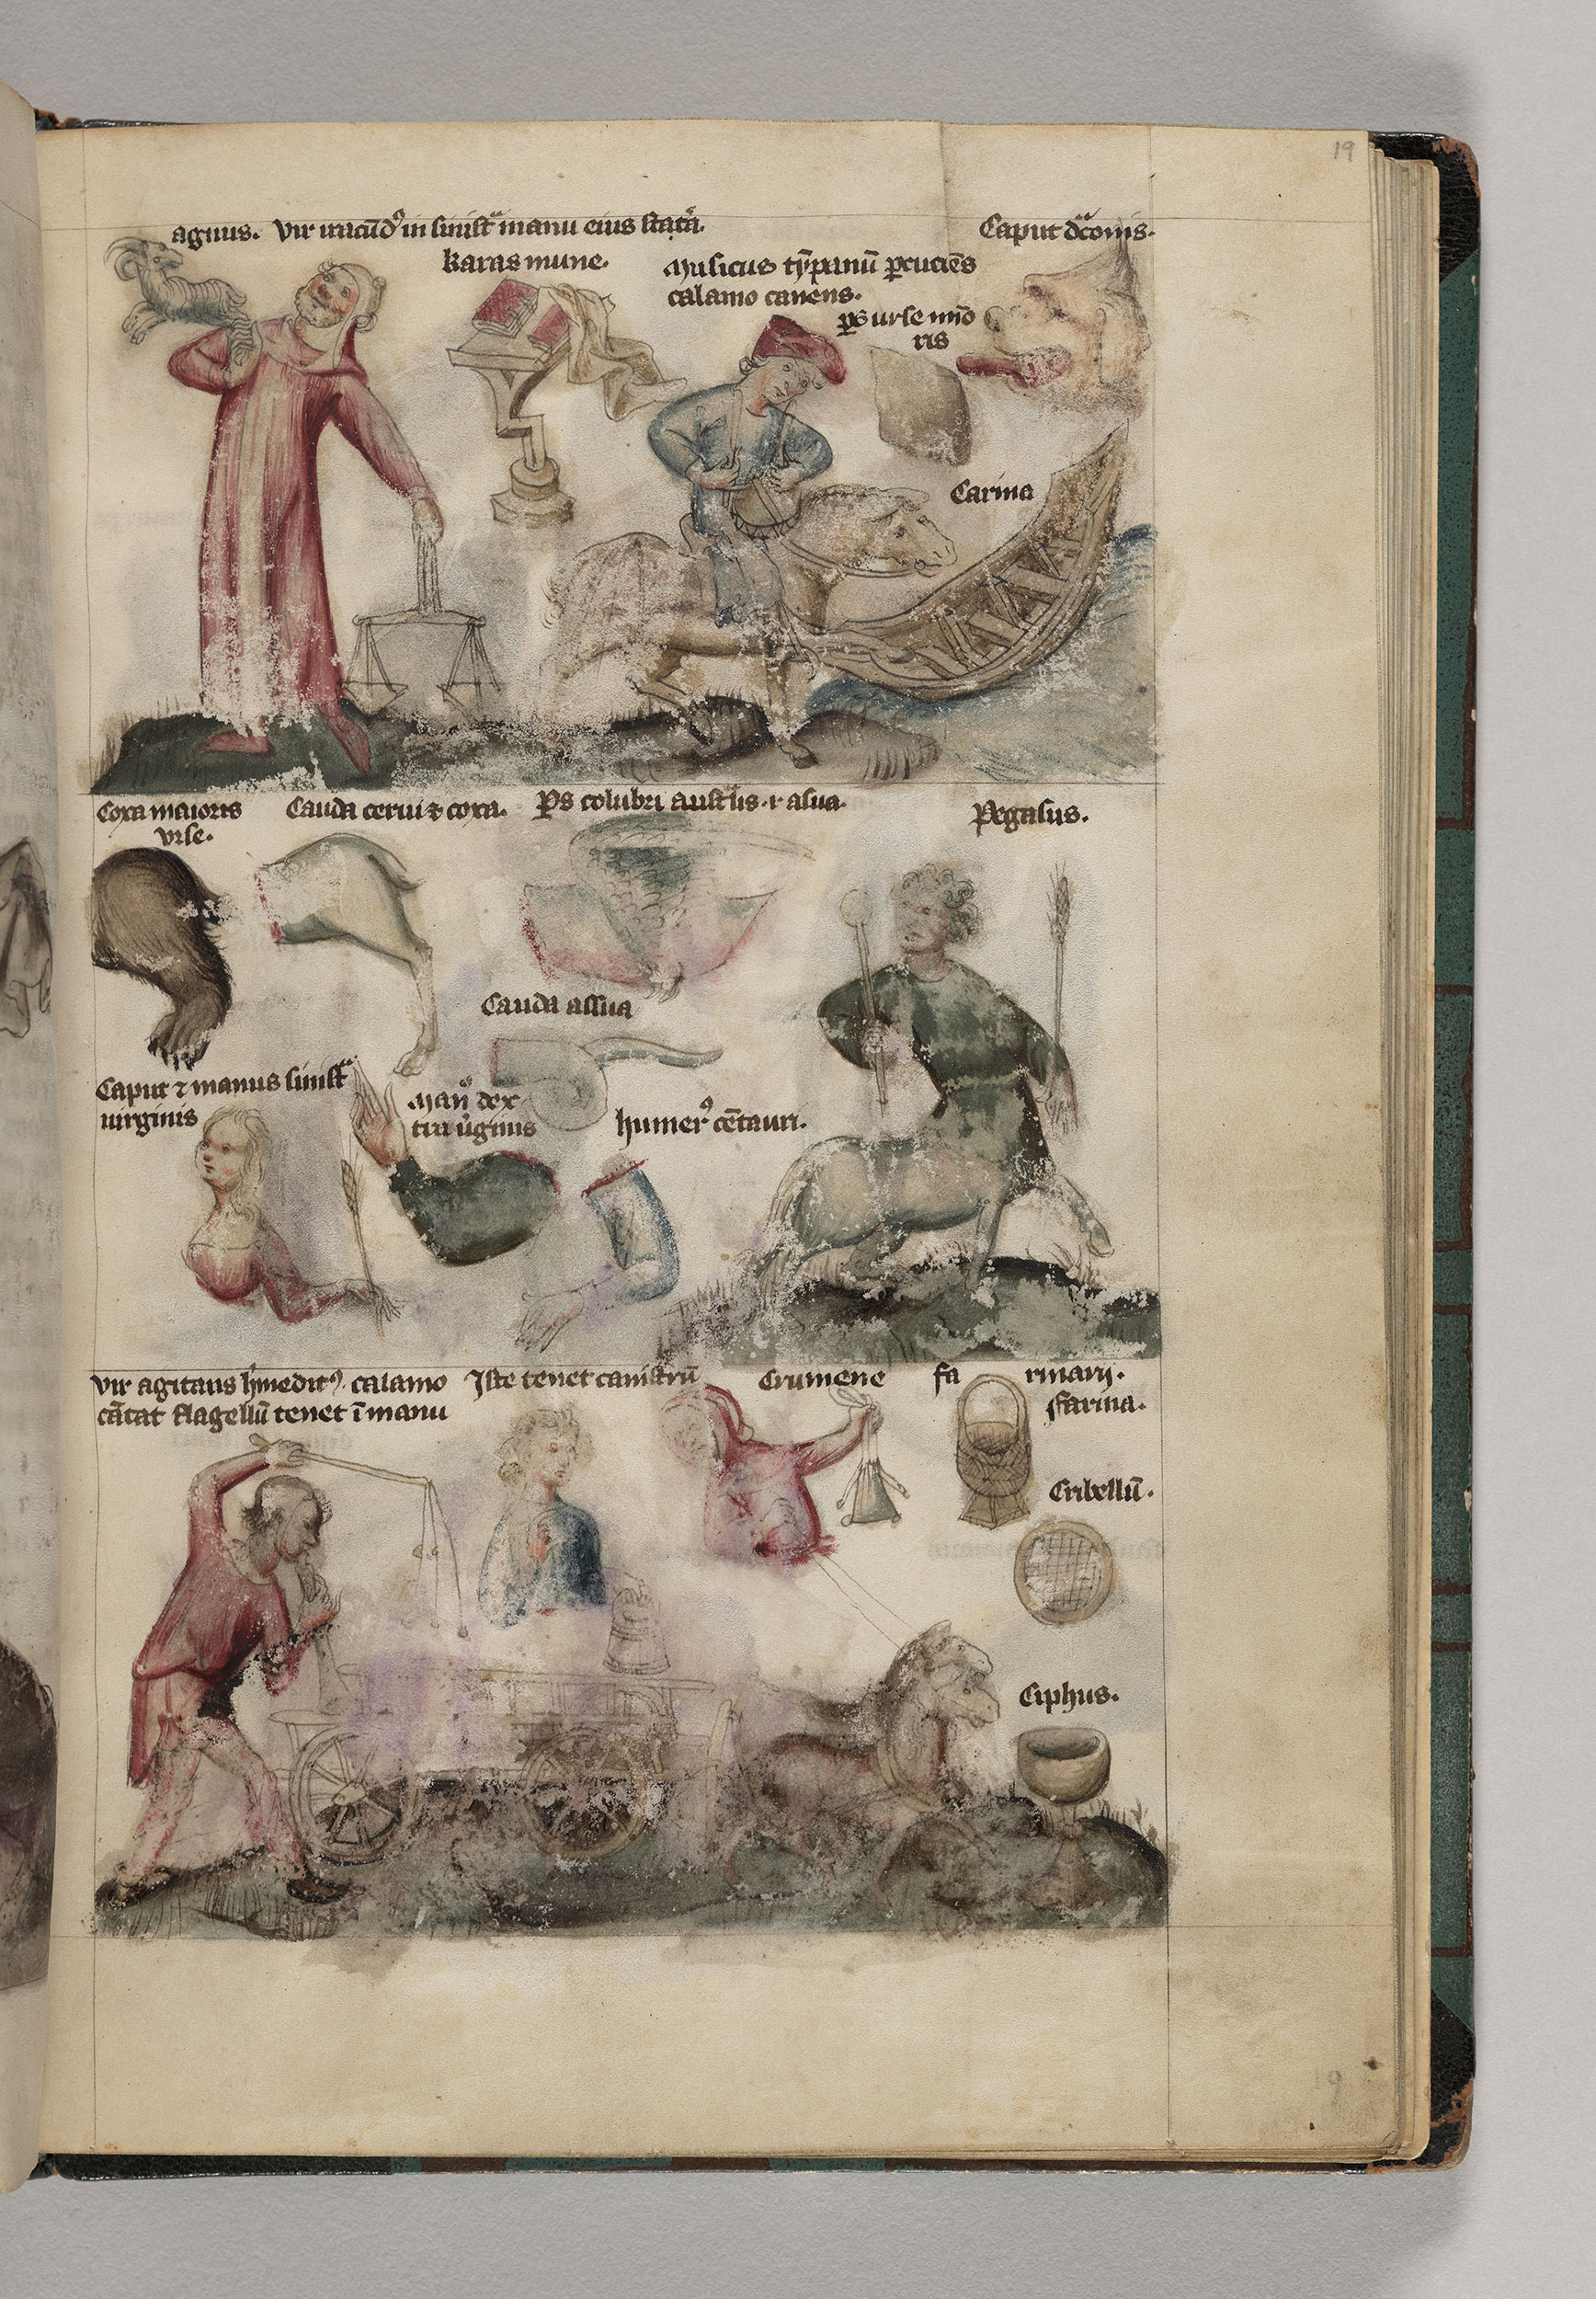 19
agnus. Vir iracūdꝰ in sinistͣ manu eius stata͛.
karas mune.
Caput dͣconis.
Musicus tȳpanū ꝑcuciēs
calamo canens.
ꝑs urse mīo
ris
Carina
Coxa maioris
vrse.
Cauda cerui ⁊ coxa.
ꝑs colubri aust͛lis ⁊ asua.
Pegasus.
Cauda assua
Caput ⁊ manus sinistͣ
uirginis
Manꝰ dex
tra u͛ginis
humerꝰ cētauri.
Vir agitans
calamo
cātat flagellū tenet ī manu
Iste tenet canistrū
Crumene
fa
rinarij.
farina.
Cribellū.
Ciphus.
19